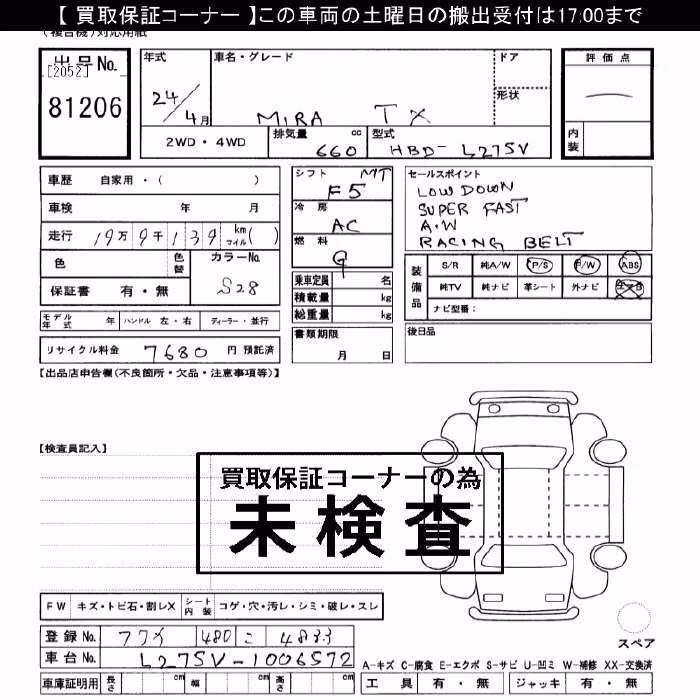 【 買取保証コーナー 】この車両の土曜日の搬出受付は17:00まで
(複合機)対応用紙
出品No.
[2052]
81206
年式
24/4月
車名・グレード
MIRA TX
ドア
形状
評価点
内装
2WD・4WD
排気量 cc
660
型式
HBD- L275V
車歴 自家用・( )
車検 年 月
走行 19万9千139 km マイル( )
色
色替
カラーNo.
S28
保証書 有・無
シフト MT
F5
冷房
AC
燃料
G
乗車定員 名
積載量 kg
総重量 kg
セールスポイント
LOW DOWN
SUPER FAST
A.W
RACING BELT
装備品
S/R 純A/W P/S P/W ABS
純TV 純ナビ 革シート 外ナビ エアB
ナビ型番:
モデル年式 年 ハンドル 左・右 ディーラー・並行
リサイクル料金 7680 円 預託済
書類期限
月 日
後日品
【出品店申告欄(不良箇所・欠品・注意事項等)】
【検査員記入】
買取保証コーナーの為
未検査
FW キズ・トビ石・割レX シート内装 コゲ・穴・汚レ・シミ・破レ・スレ
登録No. 480 こ 4833
車台No. L275V-1006572
車庫証明用 長さ cm 幅 cm 高さ cm
スペア
A-キズ C-腐食 E-エクボ S-サビ U-凹ミ W-補修 XX-交換済
工具 有・無 ジャッキ 有・無